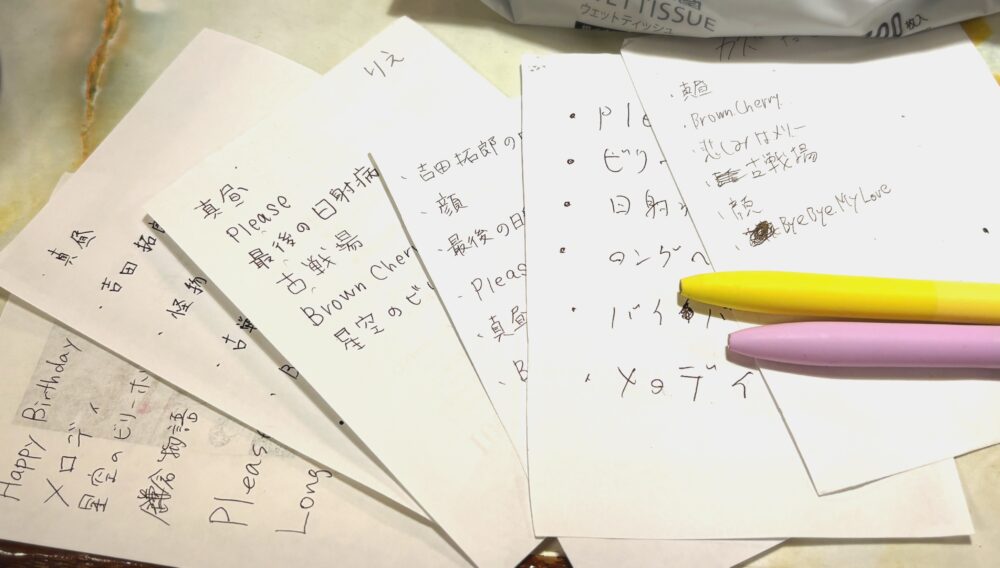 WETTISSUE
ウェットティッシュ
枚入
・真昼
・吉田 拓
・怪物
Happy Birthday
メロディ
星空のビリー
鎌倉物語
Pleas
Long
りえ
真昼
Please
最後の日射病
古戦場
Brown Cher
星空のビ
・吉田拓郎の
・顔
・最後の日
・Pleas
・真昼
・B
・Ple
・ビリ
・日射
・ロング
・バイバ
・メロディ
・真昼
・Brown Cherry
・悲しみはメリー
・古戦場
・顔
・Bye Bye My Love